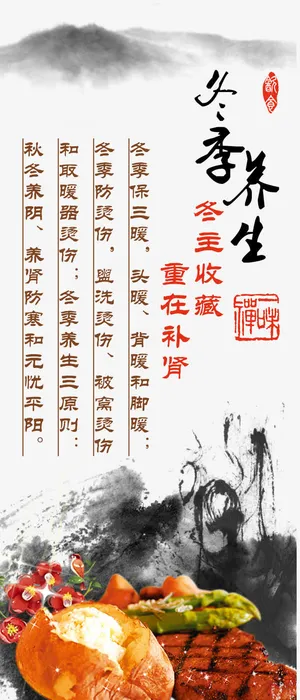 冬季养生
冬主收藏
重在补肾
冬季保三暖，头暖、背暖和脚暖；
冬季防烫伤，盥洗烫伤、被窝烫伤
和取暖器烫伤；冬季养生三原则：
秋冬养阴、养肾防寒和元忧平阳。
一味禅